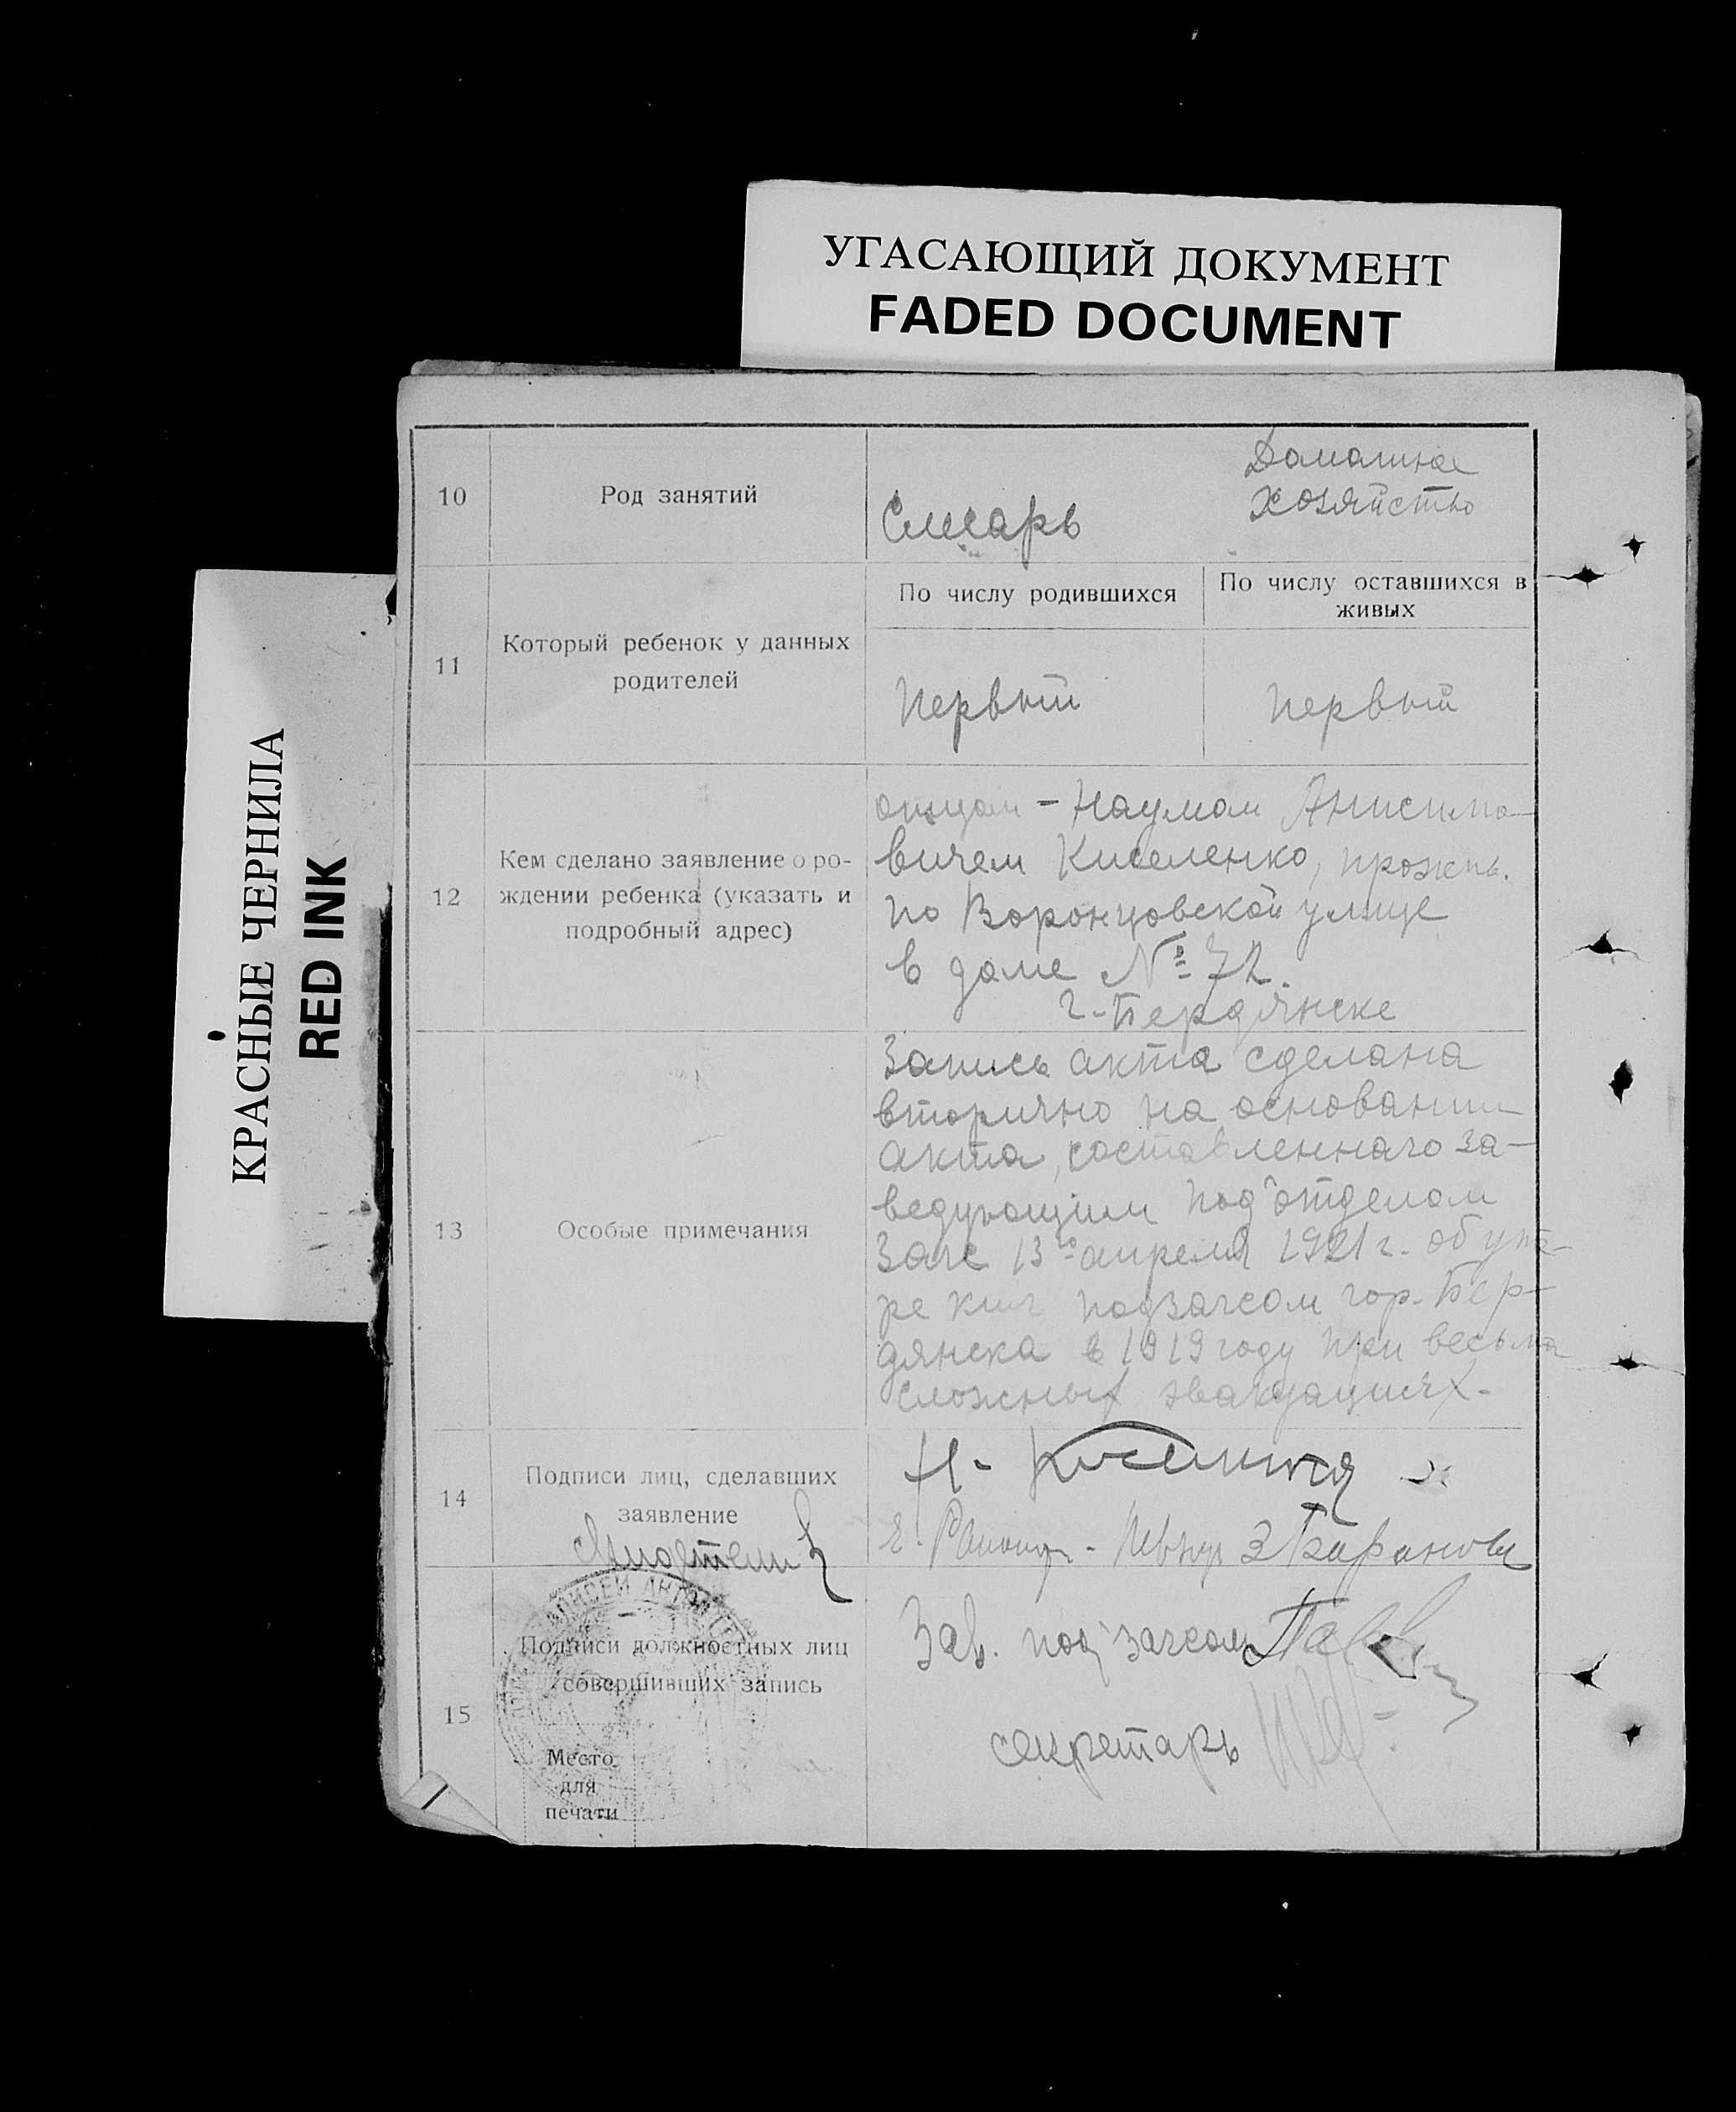 УГАСАЮЩИЙ ДОКУМЕНТ
FADED DOCUMENT
КРАСНЫЕ ЧЕРНИЛА
RED INK
10
Род занятий
Слесарь
Домашнее
хозяйство
11
Который ребенок у данных
родителей
По числу родившихся
По числу оставшихся в
живых
Первый
первый
12
Кем сделано заявление о ро-
ждении ребенка (указать и
подробный адрес)
отцом - Наумом Анисимо-
вичем Киселенко, прожив.
по Воронцовской улице
в доме № 72.
г. Бердянске
13
Особые примечания
Запись акта сделана
вторично на основании
акта, составленнаго за-
ведующим под'отделом
Загс 13го апреля 1921 г. об уте-
ре книг подзагсом гор. Бер-
дянска в 1919 году при весьма
сложных эвакуациях.
14
Подписи лиц, сделавших
заявление
Н.
Е.
З Баранова
15
Подписи должностных лиц
совершивших запись
Место
для
печати
Зав. под'загсом
секретарь